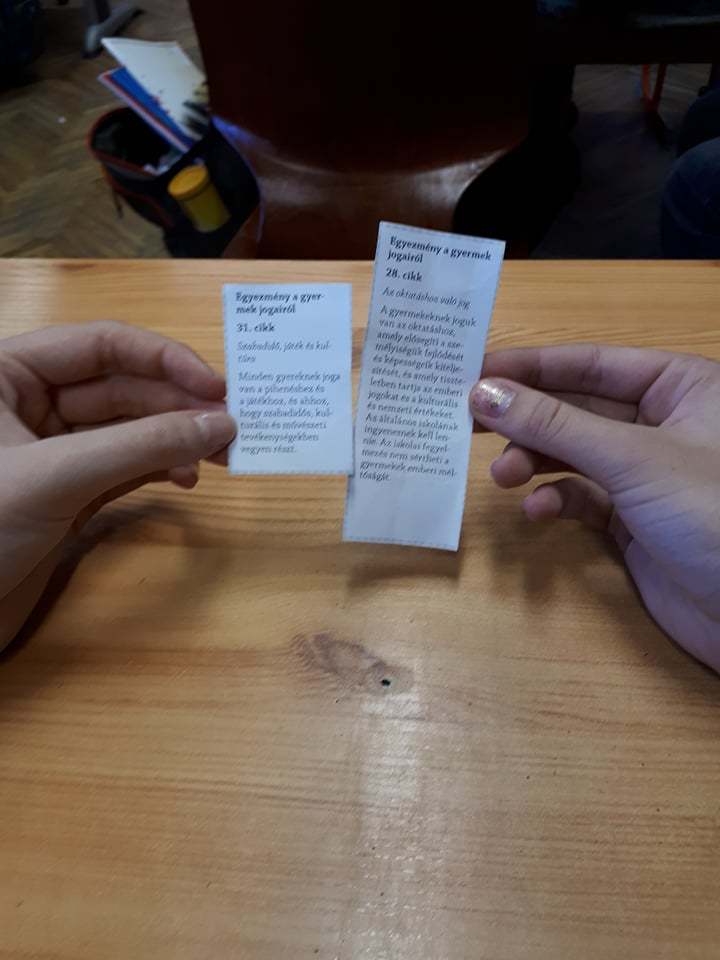 Egyezmény a gyer-
mek jogairól
31. cikk
Szabadidő, játék és kul-
túra
Minden gyereknek joga
van a pihenéshez és
a játékhoz, és ahhoz,
hogy szabadidős, kul-
turális és művészeti
tevékenységekben
vegyen részt.
Egyezmény a gyermek
jogairól
28. cikk
Az oktatáshoz való jog
A gyermekeknek joguk
van az oktatáshoz,
amely elősegíti a sze-
mélyiségük fejlődését
és képességeik kitelje-
sítését, és amely tiszte-
letben tartja az emberi
jogokat és a kulturális
és nemzeti értékeket.
Az általános iskolának
ingyenesnek kell len-
nie. Az iskolai fegyel-
mezés nem sértheti a
gyermekek emberi mél-
tóságát.